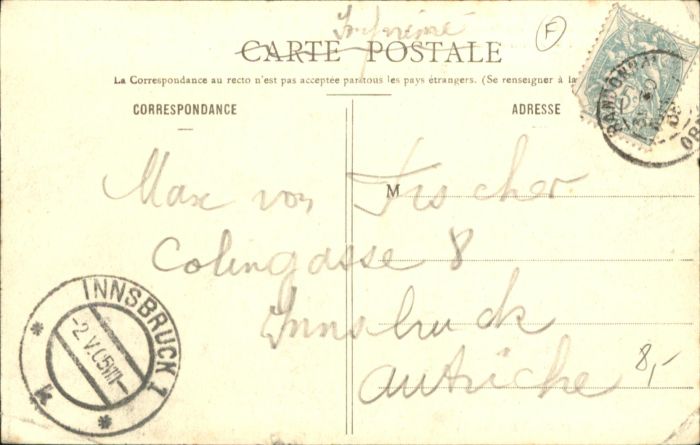 Imprimé
F
CARTE POSTALE
La Correspondance au recto n'est pas acceptée par tous les pays étrangers. (Se renseigner à la
CORRESPONDANCE
ADRESSE
Max von Fischer
M
Colingasse 8
Innsbruck
Autriche
8,-
INNSBRUCK 1
-2.V.05
k